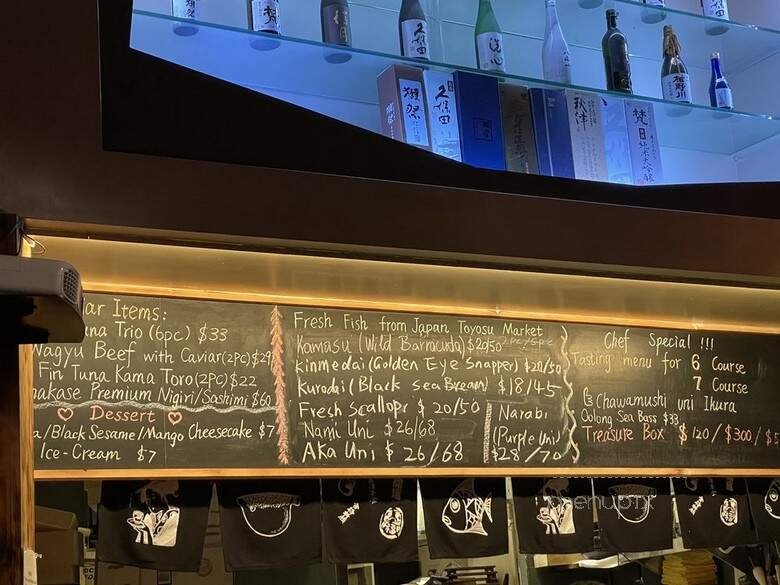 獺祭
久保田
久保田
洗心
獺祭
久保田
秋津
梵
純米大吟醸
ar Items:
una Trio (6pc) $33
Wagyu Beef with Caviar(2PC)$29
Fin Tuna Kama Toro(2PC)$22
makase Premium Nigiri/Sashimi $60
Dessert
a/Black Sesame/Mango Cheesecake $7
Ice-Cream $7
Fresh Fish from Japan Toyosu Market
2pc/5pc
Kamasu (Wild Barracuda) $20/50
Kinmedai (Golden Eye Snapper) $20/50
Kurodai (Black Sea Bream) $18/45
Fresh Scallops $20/50
Nami Uni $26/68
Aka Uni $26/68
Narabi
(Purple Uni)
$28/70
Chef Special !!!
Tasting menu for 6 Course
7 Course
Chawamushi uni Ikura
Oolong Sea Bass $33
Treasure Box $120/$300/$5
onenupix